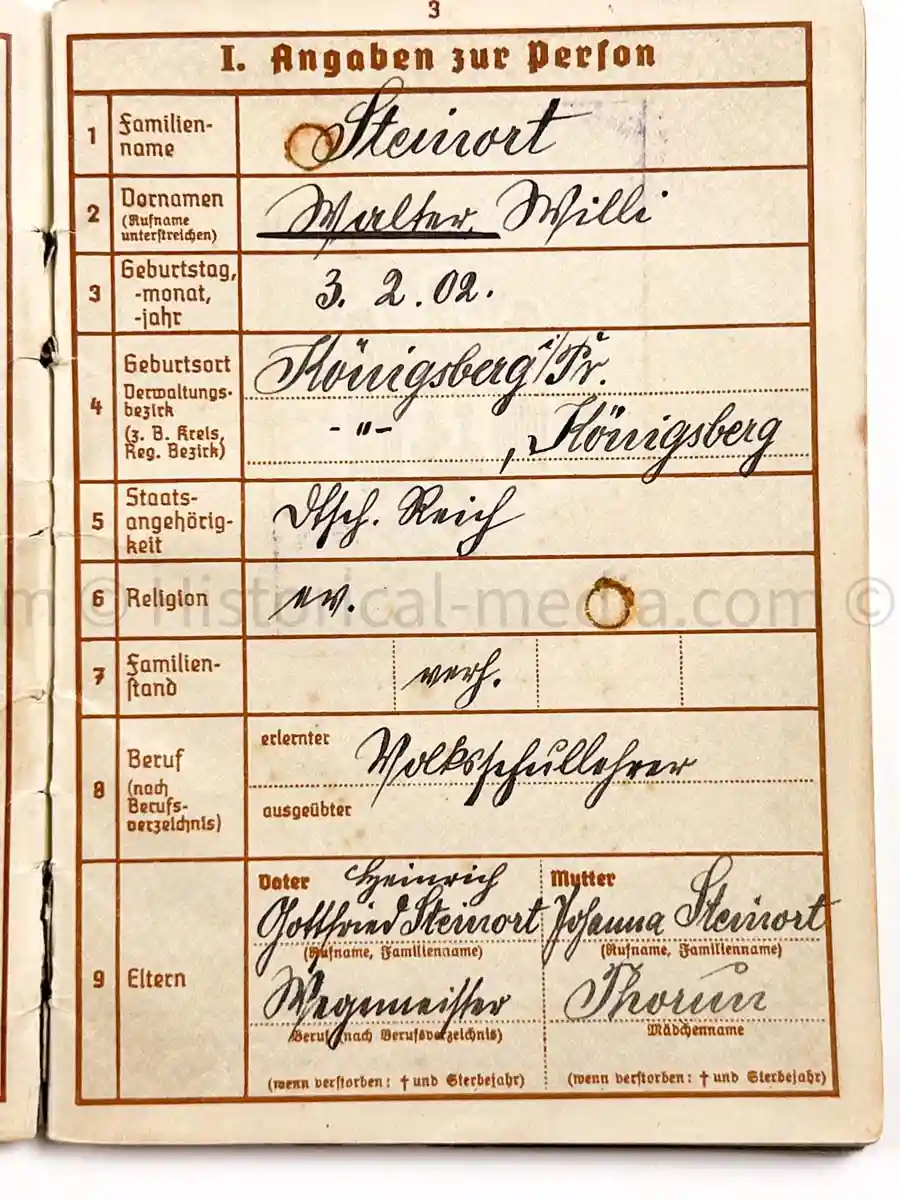 3
I. Angaben zur Person
1 Familien-
name
Steinort
2 Vornamen
(Rufname
unterstreichen)
Walter, Willi
3 Geburtstag,
-monat,
-jahr
3. 2. 02.
4 Geburtsort
Verwaltungs-
bezirk
(z. B. Kreis,
Reg. Bezirk)
Königsberg i/Pr.
-"- , Königsberg
5 Staats-
angehörig-
keit
Dtsch. Reich
6 Religion
ev.
7 Familien-
stand
verh.
8 Beruf
(nach
Berufs-
verzeichnis)
erlernter Volksschullehrer
ausgeübter
9 Eltern
Vater Heinrich
Gottfried Steinort
(Rufname, Familienname)
Wegemeister
Beruf (nach Berufsverzeichnis)
(wenn verstorben: † und Sterbejahr)
Mutter
Johanna Steinort
(Rufname, Familienname)
Thorun
Mädchenname
(wenn verstorben: † und Sterbejahr)
m © Historical-media.com ©